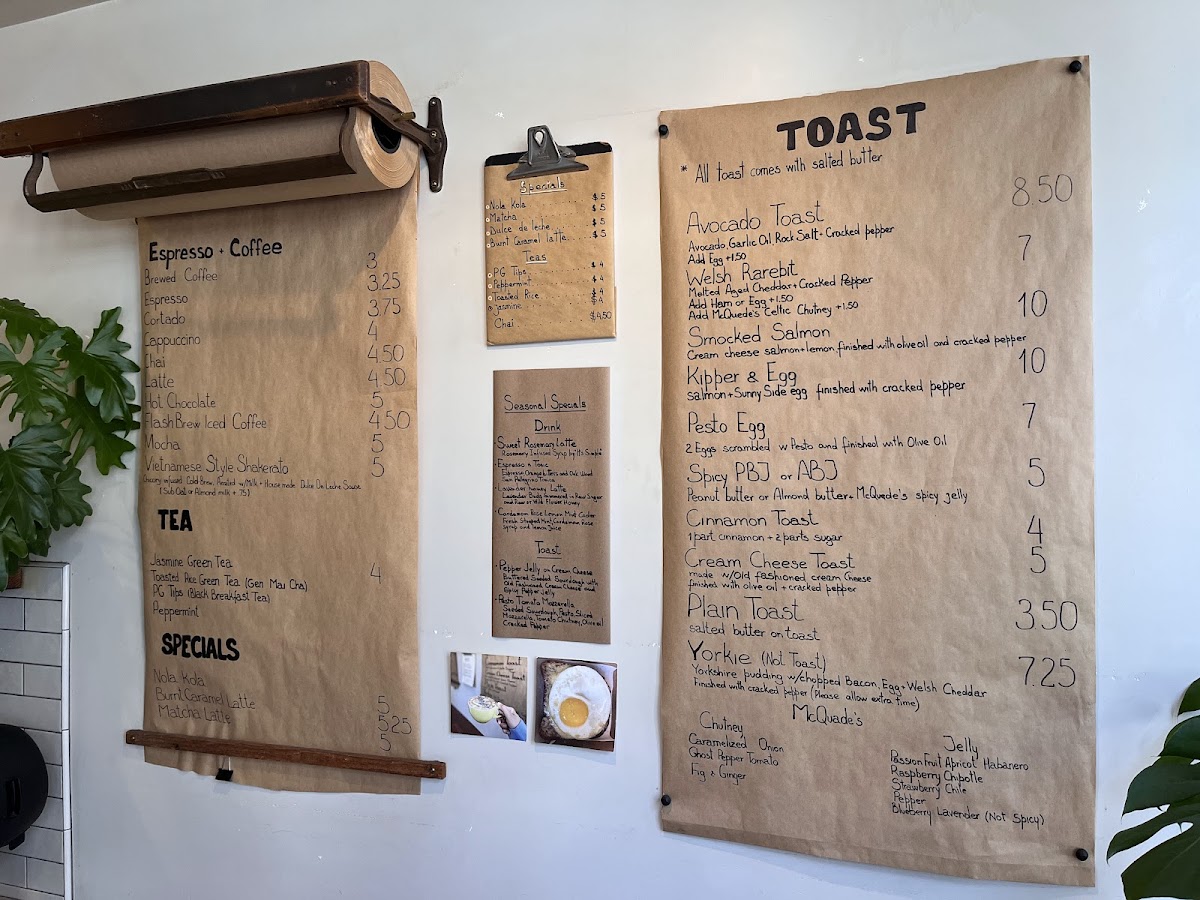 Espresso + Coffee
Brewed Coffee 3
Espresso 3.25
Cortado 3.75
Cappuccino 4
Chai 4.50
Latte 4.50
Hot Chocolate 5
Flash Brew Iced Coffee 4.50
Mocha 5
Vietnamese Style Shakerato 5
Cold Brew, w/Milk + House made Dulce De Leche Sause
(Sub Oat or Almond milk + .75)
TEA
Jasmine Green Tea
Toasted Rice Green Tea (Gen Mai Cha) 4
PG Tips (Black Breakfast Tea)
Peppermint
SPECIALS
Nola Kola 5
Burnt Caramel Latte 5.25
Matcha Latte 5
Specials
Nola Kola $5
Matcha $5
Dulce de leche $5
Burnt Caramel latte $5
Teas
PG Tips $4
Peppermint $4
Toasted Rice $4
Jasmine $4
Chai $4.50
Seasonal Specials
Drink
Sweet Rosemary Latte
Rosemary Infused Syrup
Espresso n Tonic
Espresso Orange Bitters and
San Pellegrino Tonica
Lavender honey Latte
Lavender Buds hammered in Raw Sugar
and Raw or Wild Flower Honey
Cardamom Rose Lemon Mint Cider
Fresh Mint, Cardamom Rose
Syrup and Lemon Juice
Toast
Pepper Jelly on Cream Cheese
Buttered Seeded Sourdough with
Old Fashioned Cream Cheese and
Spicy Pepper Jelly
Pesto Tomato Mozzarella
Seeded Sourdough, Pesto, Sliced
Mozzarella, Tomato Chutney, Olive oil
Cracked Pepper
TOAST
* All toast comes with salted butter
Avocado Toast 8.50
Avocado, Garlic Oil, Rock Salt + Cracked pepper
Add Egg +1.50
Welsh Rarebit 7
Melted Aged Cheddar + Cracked Pepper
Add Ham or Egg +1.50
Add McQuade's Celtic Chutney +1.50
Smocked Salmon 10
Cream cheese salmon + lemon finished with olive oil and cracked pepper
Kipper & Egg 10
salmon + Sunny Side egg finished with cracked pepper
Pesto Egg 7
2 Eggs scrambled w Pesto and finished with Olive Oil
Spicy PBJ or ABJ 5
Peanut butter or Almond butter + McQuade's spicy jelly
Cinnamon Toast 4
1 part cinnamon + 2 parts sugar
Cream Cheese Toast 5
made w/old fashioned cream cheese
finished with olive oil + cracked pepper
Plain Toast 3.50
salted butter on toast
Yorkie (Not Toast) 7.25
Yorkshire pudding w/chopped Bacon, Egg + Welsh Cheddar
Finished with cracked pepper (Please allow extra time)
McQuade's
Chutney
Caramelized Onion
Ghost Pepper Tomato
Fig & Ginger
Jelly
Passion Fruit Apricot Habanero
Raspberry Chipotle
Strawberry Chile
Pepper
Blueberry Lavender (Not Spicy)